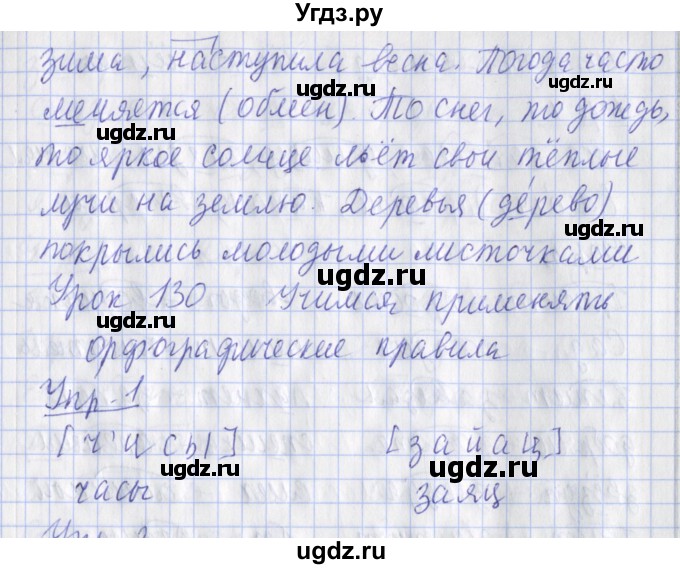 Угдз.ру
зима, наступила весна. Погода часто
меняется (обмен). То снег, то дождь,
то яркое солнце льёт свои тёплые
лучи на землю. Деревья (дерево)
покрылись молодыми листочками
Урок 130 Учимся применять
орфографические правила
Упр. 1
[ч'исы] [зайац]
часы заяц
ugdz.ru
ugdz.ru
ugdz.ru
ugdz.ru
ugdz.ru
ugdz.ru
ugdz.ru
ugdz.ru
ugdz.ru
ugdz.ru
ugdz.ru
ugdz.ru